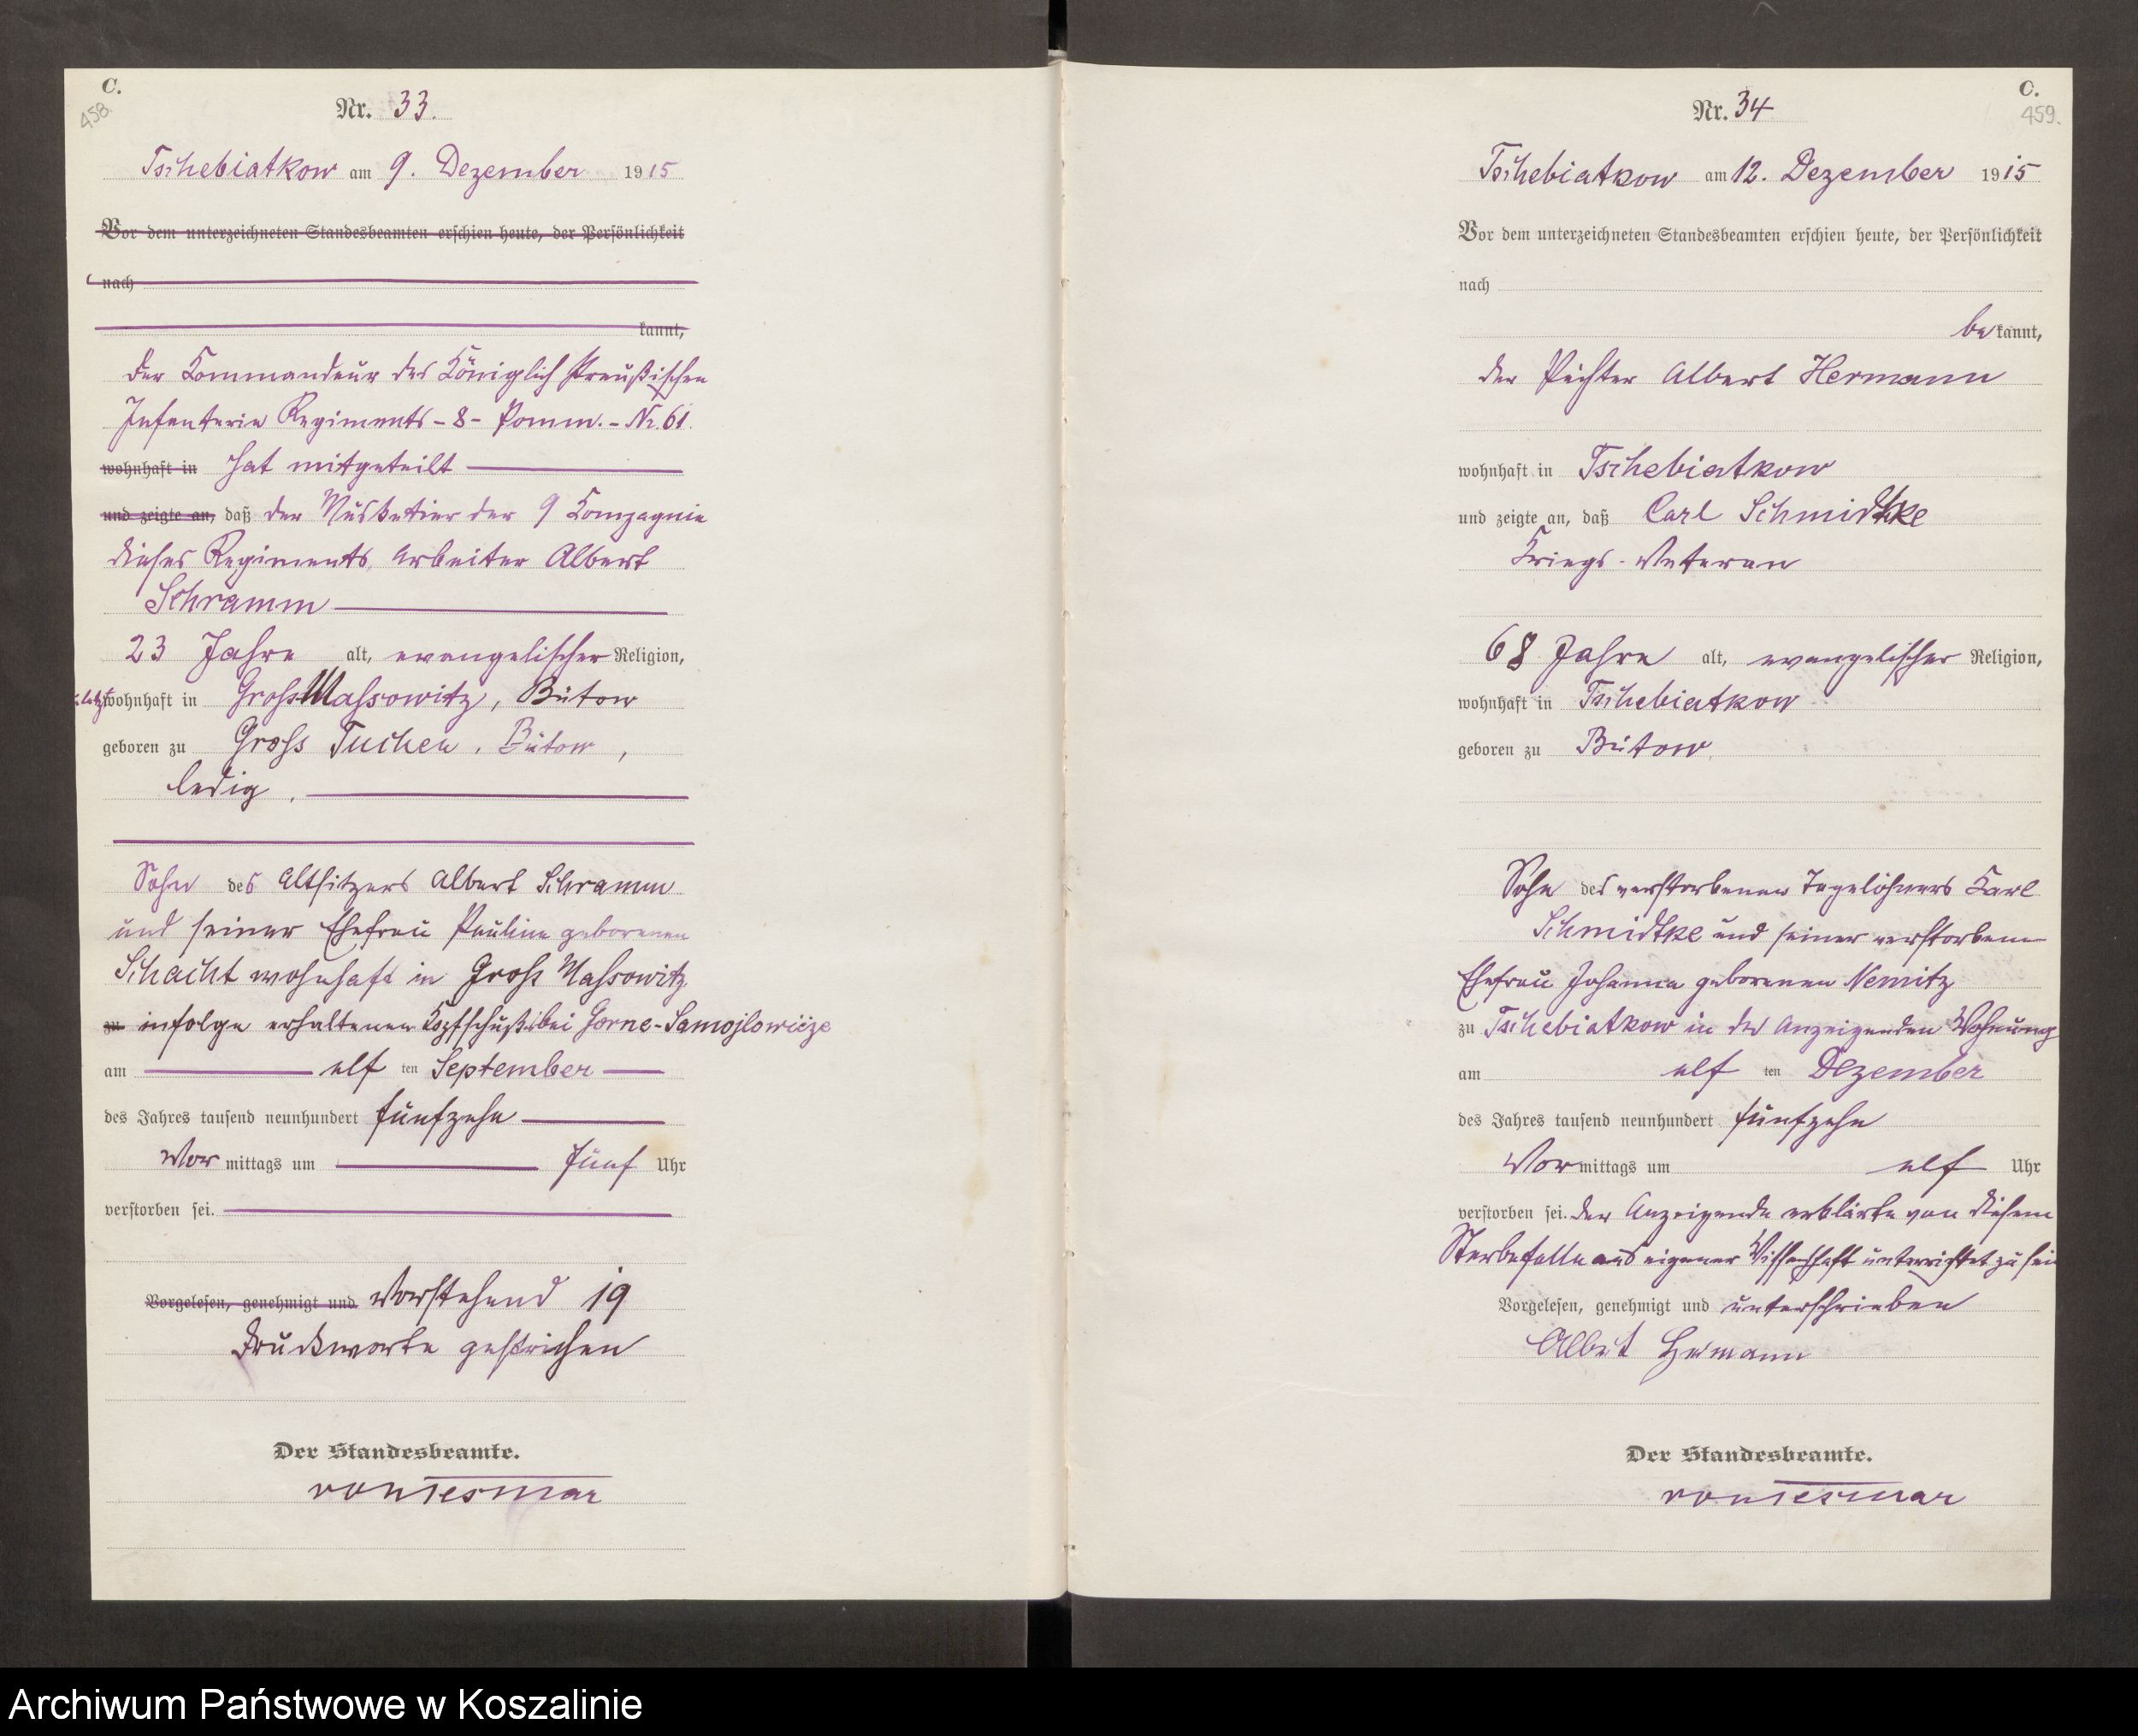 C.
458.
Nr. 33.
Tschebiatkow am 9. Dezember 1915
Vor dem unterzeichneten Standesbeamten erschien heute, der Persönlichkeit
nach
kannt,
der Kommandeur des Königlich Preußischen
Infanterie Regiments - 8 - Pomm. - Nr. 61.
wohnhaft in hat mitgeteilt
und zeigte an, daß der Musketier der 9 Kompagnie
dieses Regiments, Arbeiter Albert
Schramm
23 Jahre alt, evangelischer Religion,
zuletzt wohnhaft in Gross Massowitz, Bütow
geboren zu Gross Tuchen, Bütow,
ledig,
Sohn des Altsitzers Albert Schramm
und seiner Ehefrau Pauline geborenen
Schacht wohnhaft in Gross Massowitz
zu infolge erhaltenen Kopfschuß bei Gorne-Samojlowicze
am elf ten September
des Jahres tausend neunhundert fünfzehn
Vor mittags um fünf Uhr
verstorben sei.
Vorgelesen, genehmigt und Vorstehend 19
Druckworte gestrichen
Der Standesbeamte.
von Tesmar
C.
459.
Nr. 34
Tschebiatkow am 12. Dezember 1915
Vor dem unterzeichneten Standesbeamten erschien heute, der Persönlichkeit
nach
bekannt,
der Pächter Albert Hermann
wohnhaft in Tschebiatkow
und zeigte an, daß Carl Schmidtke
Kriegs-Veteran
68 Jahre alt, evangelischer Religion,
wohnhaft in Tschebiatkow
geboren zu Bütow,
Sohn des verstorbenen Tagelöhners Karl
Schmidtke und seiner verstorbenen
Ehefrau Johanna geborenen Nemitz
zu Tschebiatkow in des Anzeigenden Wohnung
am elf ten Dezember
des Jahres tausend neunhundert fünfzehn
Vormittags um elf Uhr
verstorben sei. Der Anzeigende erklärte von diesem
Sterbefalle aus eigener Wissenschaft unterrichtet zu sein
Vorgelesen, genehmigt und unterschrieben
Albert Hermann
Der Standesbeamte.
von Tesmar
Archiwum Państwowe w Koszalinie